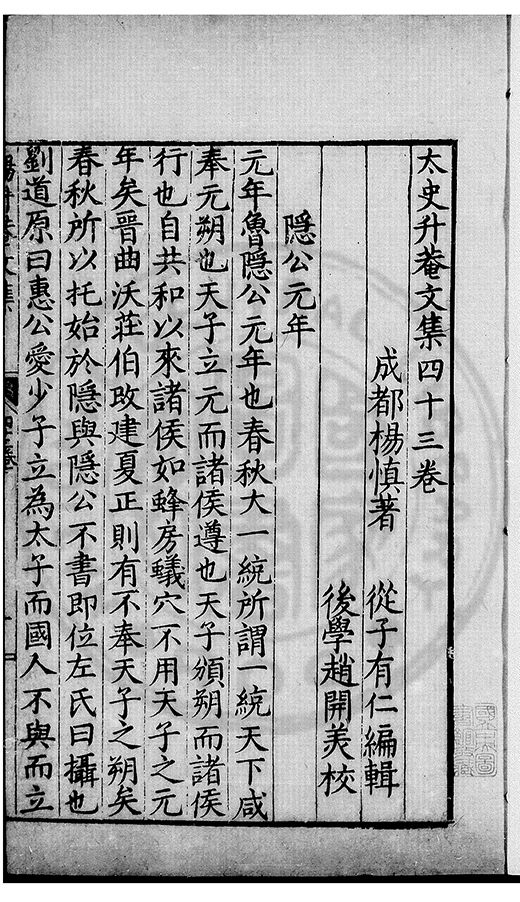 太史升菴文集四十三卷
成都楊慎著　從子有仁編輯
後學趙開美校
隱公元年
元年魯隱公元年也春秋大一統所謂一統天下咸
奉元朔也天子立元而諸侯遵也天子頒朔而諸侯
行也自共和以來諸侯如蜂房蟻穴不用天子之元
年矣晉曲沃莊伯改建夏正則有不奉天子之朔矣
春秋所以托始於隱與隱公不書即位左氏曰攝也
劉道原曰惠公愛少子立為太子而國人不與而立